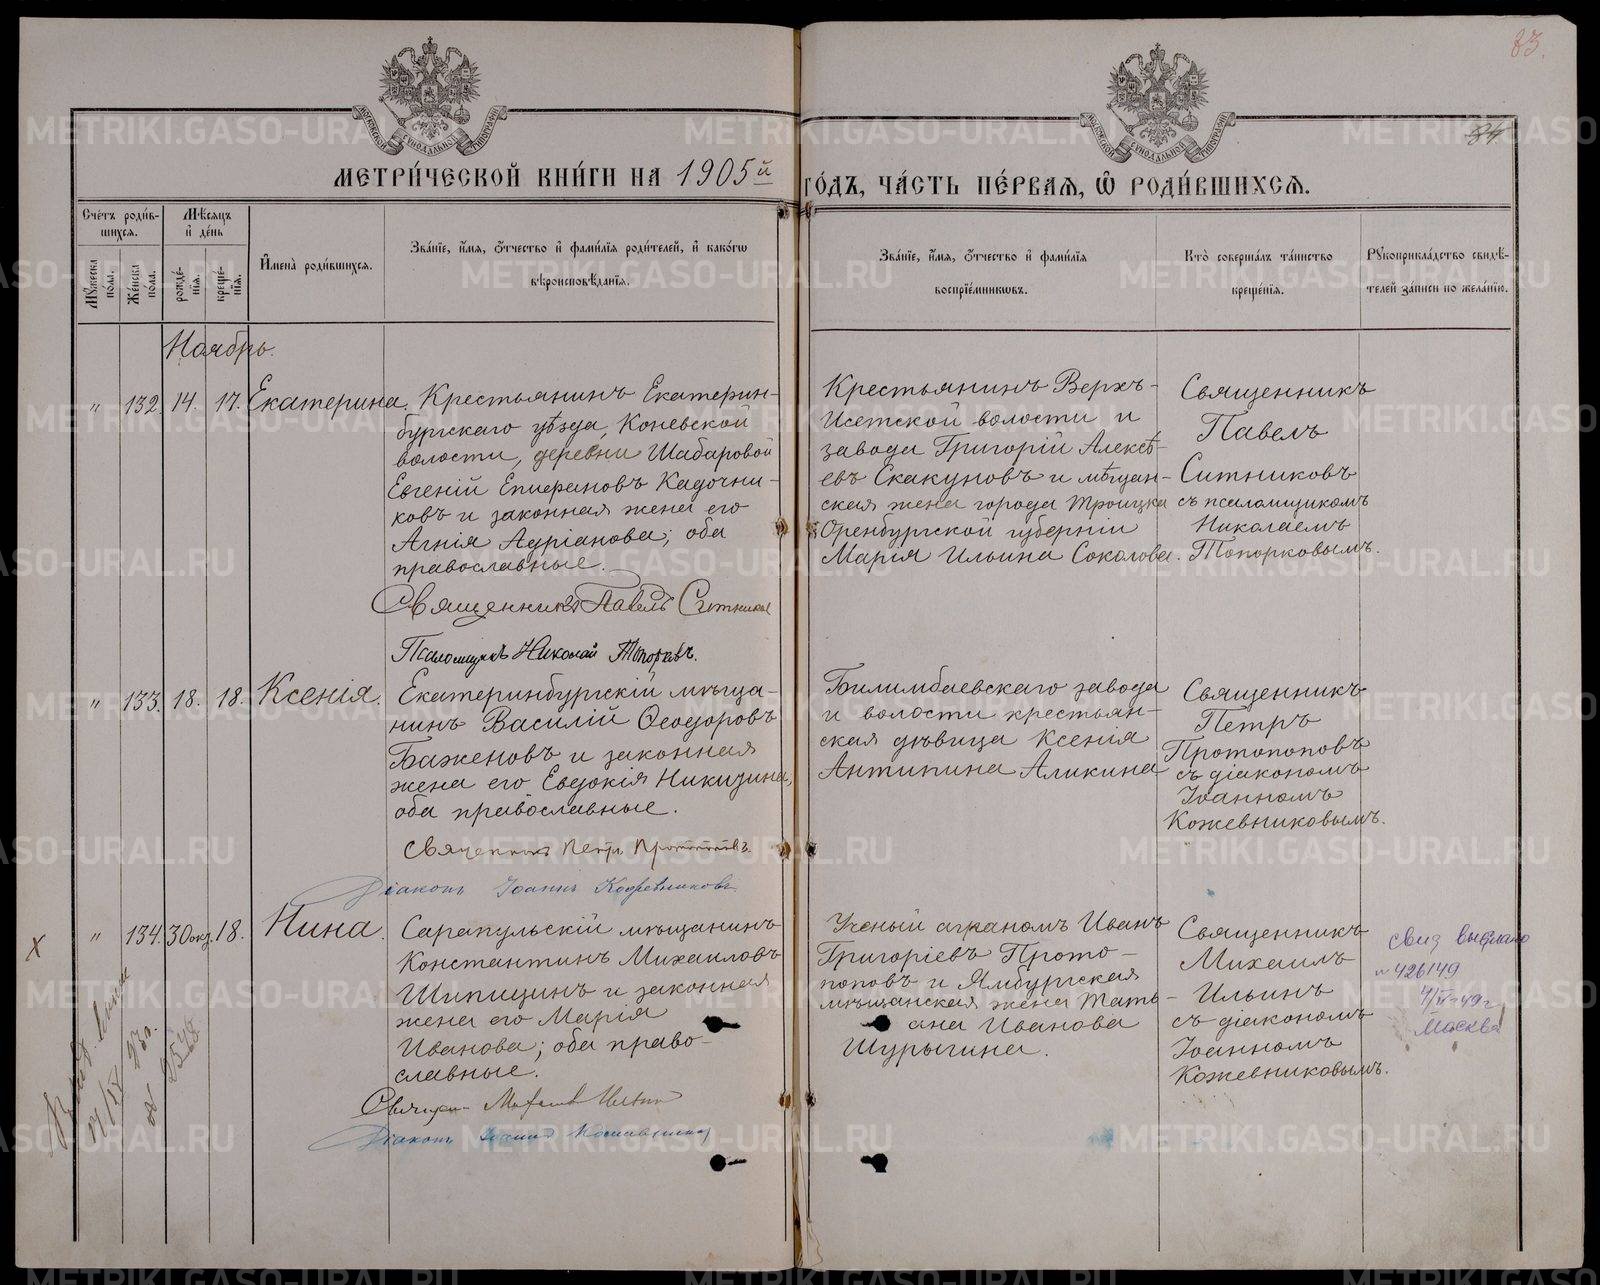 83.
84
МЕТРИ́ЧЕСКОЙ КНИ́ГИ НА 1905й ГО́ДЪ, ЧА́СТЬ ПЕ́РВАЯ, Ѽ РОДИ́ВШИХСЯ.
МОСКОВСКОЙ СѴНОДАЛЬНОЙ ТИПОГРАФІИ
МОСКОВСКОЙ СѴНОДАЛЬНОЙ ТИПОГРАФІИ
Сче́тъ роди́вшихся.
Му́жеска по́ла.
Же́нска по́ла.
Мѣ́сяцъ и де́нь
рожде́нія.
креще́нія.
Имена̀ роди́вшихся.
Зва́ніе, и́мя, о́тчество и фами́лія роди́телей, и како́гѡ
вѣроисповѣ́данія.
Зва́ніе, и́мя, о́тчество и фами́лія
воспріе́мниковъ.
Кто̀ соверша́лъ та́инство
креще́нія.
Рукоприкла́дство свидѣ́-
телей за́писи по жела́нію.
Ноябрь.
" 132. 14. 17. Екатерина.
Крестьянинъ Екатерин-
бургскаго уѣзда, Коневской
волости, деревни Шабаровой
Евгеній Епифановъ Кадочни-
ковъ и законная жена его
Агнія Адріанова; оба
православные.
Священникъ Павелъ Ситников
Псаломщикъ Николай Топорковъ.
Крестьянинъ Верхъ-
Исетской волости и
завода Григорій Алексѣ-
евъ Скакуновъ и мѣщан-
ская жена города Троицка
Оренбургской губерніи
Марія Ильина Соколова.
Священникъ
Павелъ
Ситниковъ
съ псаломщикомъ
Николаемъ
Топорковымъ.
" 133. 18. 18. Ксенія.
Екатеринбургскій мѣща-
нинъ Василій Ѳеодоровъ
Баженовъ и законная
жена его Евдокія Никизина,
оба православные.
Священникъ Петръ Протопоповъ.
Діаконъ Іоаннъ Кожевниковъ
Билимбаевскаго завода
и волости крестьян-
ская дѣвица Ксенія
Антипина Аликина
Священникъ
Петръ
Протопоповъ
съ діакономъ
Іоанномъ
Кожевниковымъ.
х " 134. 30 окт. 18. Нина.
Сарапульскій мѣщанинъ
Константинъ Михаиловъ
Шипицинъ и законная
жена его Марія
Иванова; оба право-
славные.
Священ. Михаилъ Ильинъ
Діаконъ Іоаннъ Кожевников
Ученый агрономъ Иванъ
Григоріевъ Прото-
поповъ и Ямбургская
мѣщанская жена Тать-
яна Иванова
Шурыгина.
Священникъ
Михаилъ
Ильинъ
съ діакономъ
Іоанномъ
Кожевниковымъ.
свид выслано
№426149
Москва
METRIKI.GASO-URAL.RU